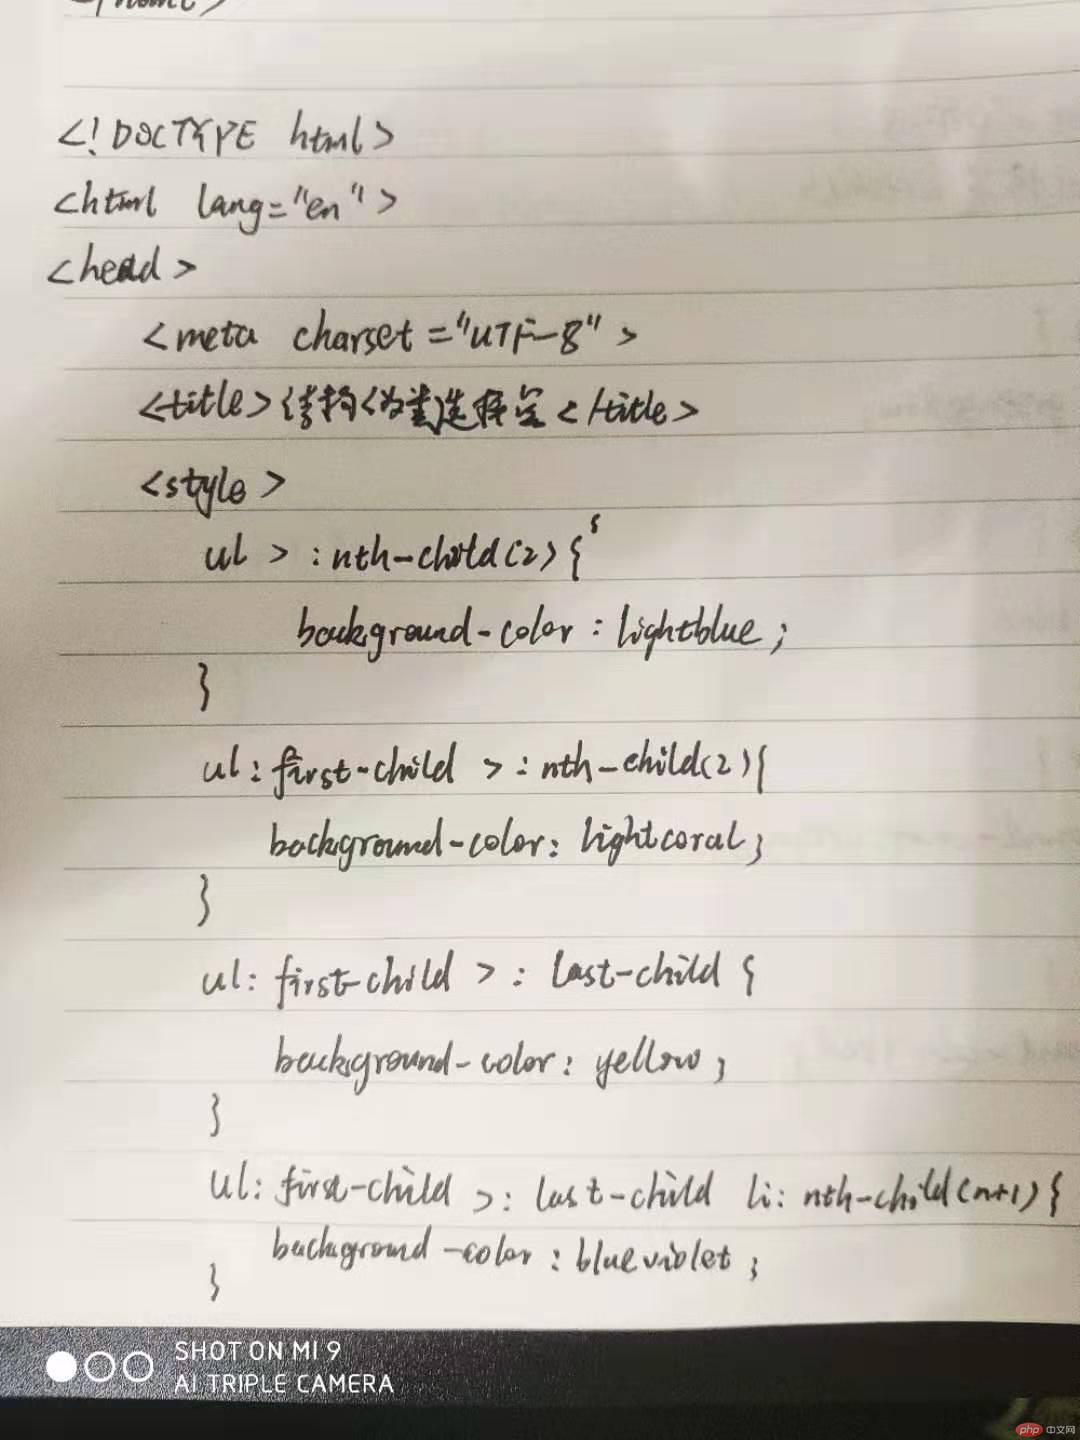 <!DOCTYPE html>
<html lang="en">
<head>
<meta charset="UTF-8">
<title>结构伪类选择器</title>
<style>
ul > :nth-child(2){
background-color: lightblue;
}
ul:first-child >:nth-child(2){
background-color: lightcoral;
}
ul:first-child >:last-child {
background-color: yellow;
}
ul:first-child >:last-child li:nth-child(n+1){
background-color: blueviolet;
}
SHOT ON MI 9
AI TRIPLE CAMERA
php 中文网